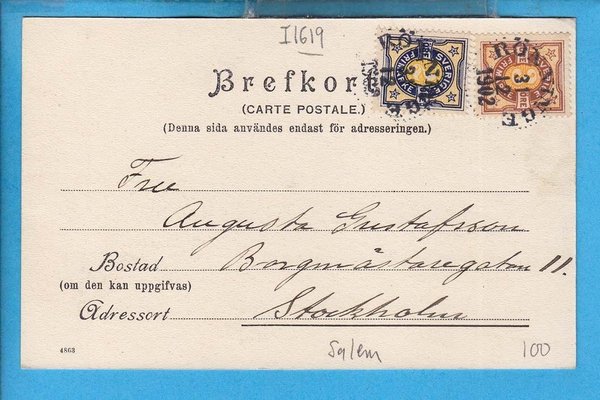 I1619
Brefkort
(CARTE POSTALE.)
(Denna sida användes endast för adresseringen.)
SVERIGE
FRIMÄRKE
RÖNNINGE
1902
3
Fru
Augusta Gustafsson
Bostad Borgmästaregatan 11.
(om den kan uppgifvas)
Adressort Stockholm
4863
Salem
100